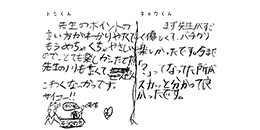 トシくん
先生のポイントの
言い方がわかりやすくて
もうめちゃくちゃやさしい
ので、とても楽しかったです。
先生のノリもよくて
こわくなかったです。
サイコー!!
キョウくん
まず先生がすご
く優しくて、バチクソ
楽しかったです。今まで
「?」ってなってた所が
スカッと分かって良
かったです。